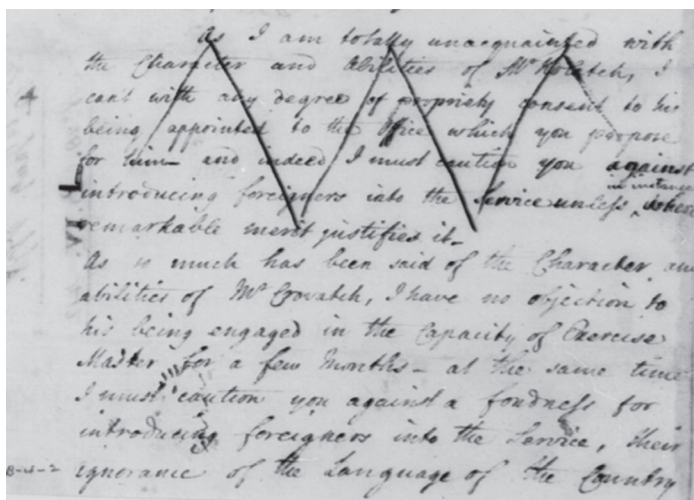 As I am totally unacquainted with
the Character and Abilities of Mr Kolatch, I
cant with any degree of propriety consent to his
being appointed to the Office which you propose
for him — and indeed I must caution you against
in instances
introducing foreigners into the Service unless where
remarkable merit justifies it —
As so much has been said of the Character and
abilities of Mr Crovatch, I have no objection to
his being engaged in the Capacity of Exercise
Master for a few Months — at the same time
I must caution you against a fondness for
introducing foreigners into the Service, their
ignorance of the Language of the Country